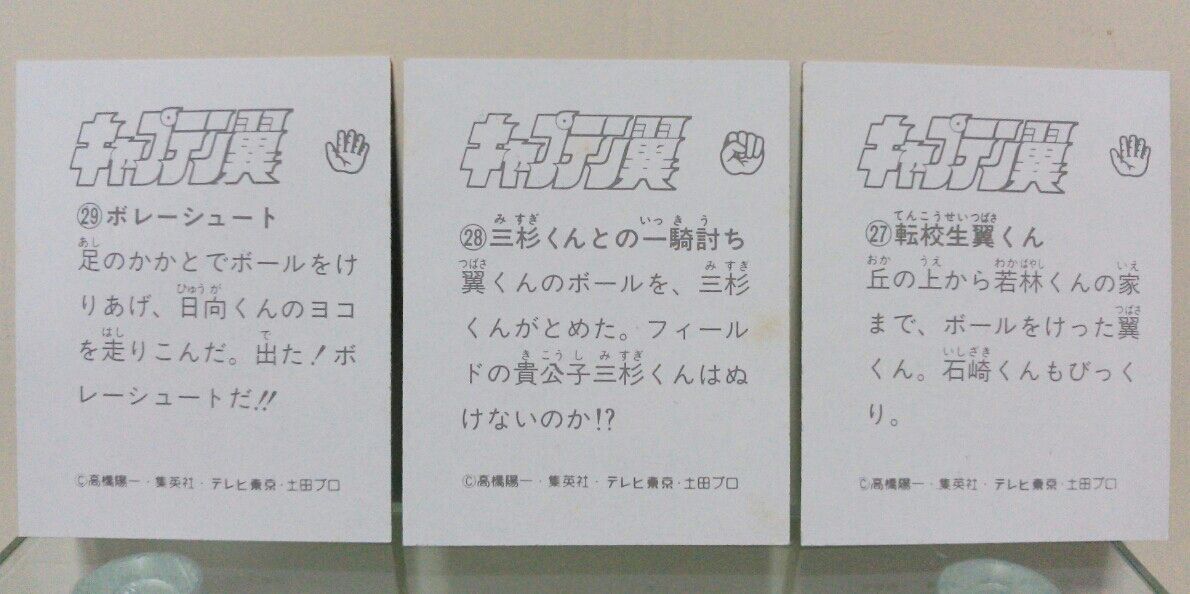 キャプテン翼
㉙ボレーシュート
足のかかとでボールをけ
りあげ、日向くんのヨコ
を走りこんだ。出た！ボ
レーシュートだ!!
©高橋陽一・集英社・テレビ東京・土田プロ
キャプテン翼
㉘三杉くんとの一騎討ち
翼くんのボールを、三杉
くんがとめた。フィール
ドの貴公子三杉くんはぬ
けないのか!?
©高橋陽一・集英社・テレビ東京・土田プロ
キャプテン翼
㉗転校生翼くん
丘の上から若林くんの家
まで、ボールをけった翼
くん。石崎くんもびっく
り。
©高橋陽一・集英社・テレビ東京・土田プロ